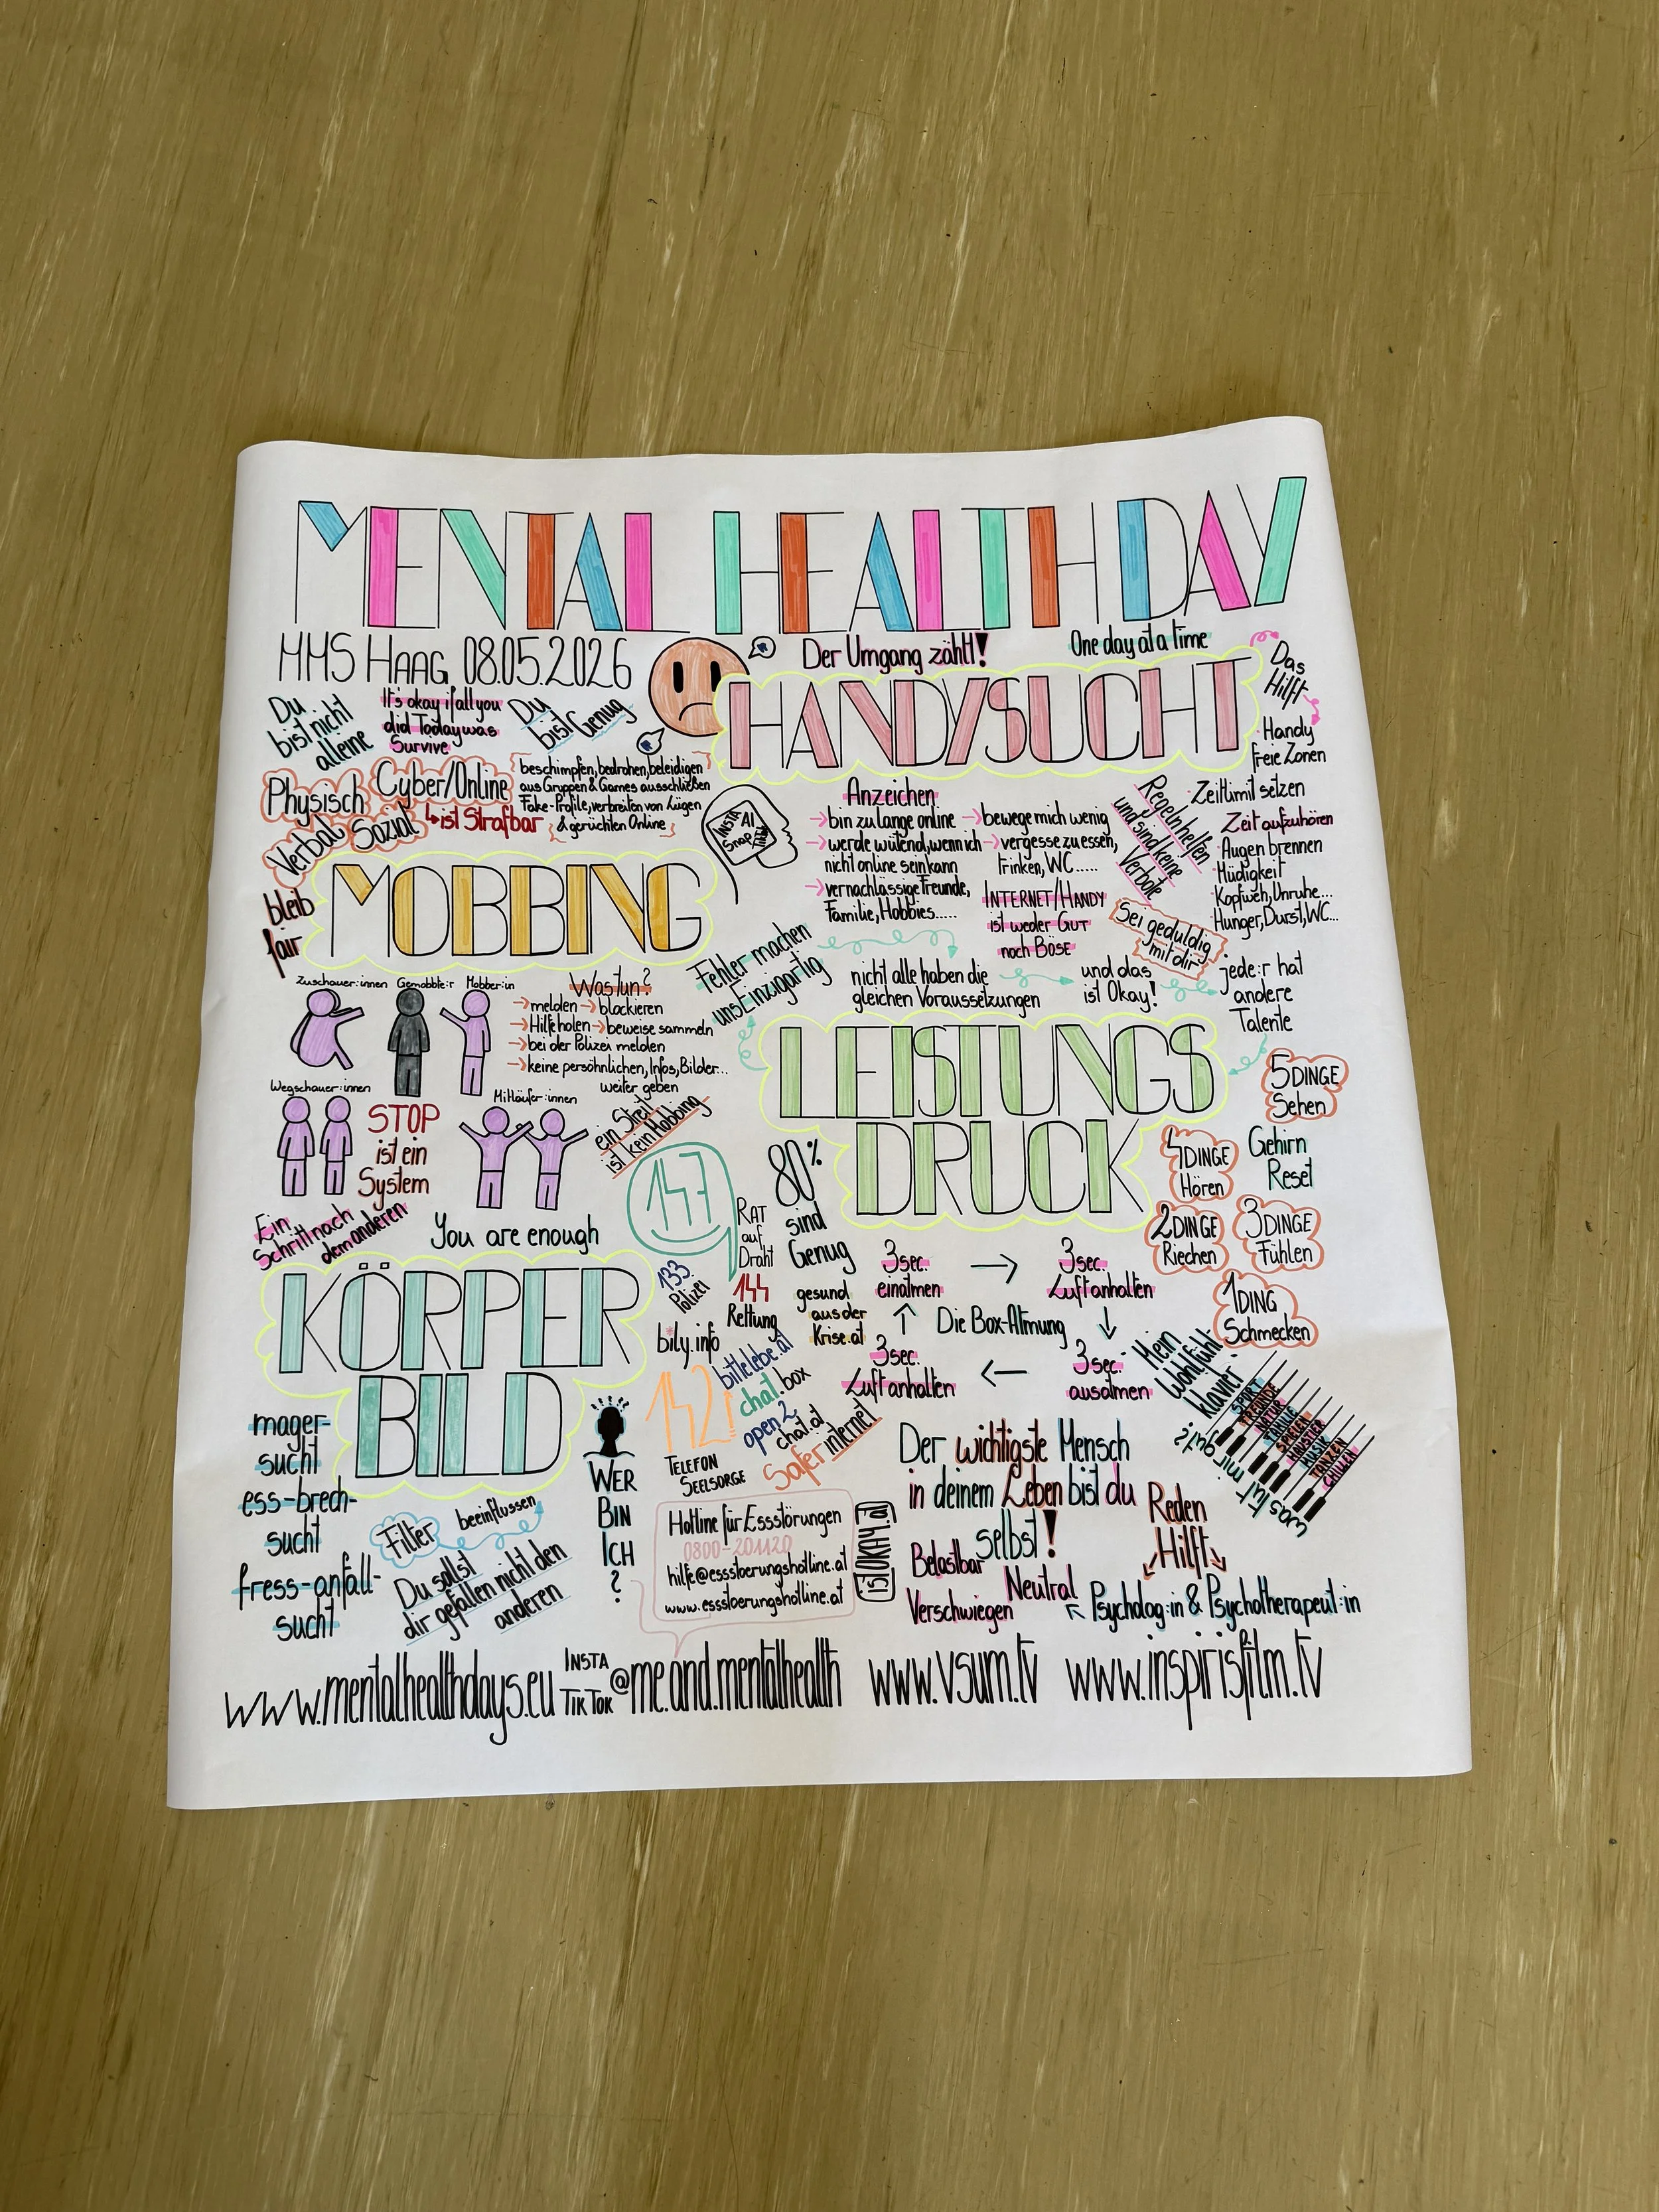 MENTAL HEALTH DAY
MMS HAAG 08.05.2026
Der Umgang zählt!
One day at a time
Du
bist nicht
alleine
It's okay if all you
did Today was
Survive
Du
bist Genug
HANDYSUCHT
Das
Hilft
Handy
freie Zonen
Zeitlimit setzen
Zeit aufzuhören
Augen brennen
Müdigkeit
Kopfweh, Unruhe...
Hunger, Durst, WC...
Regeln helfen
und sind keine
Verbote
Physisch
Cyber/Online
Verbal
Sozial
ist Strafbar
beschimpfen, bedrohen, beleidigen
aus Gruppen & Games ausschließen
Fake-Profile, verbreiten von Lügen
& gerüchten Online
INSTA
AI
Snap
Anzeichen
→ bin zu lange online
→ werde wütend, wenn ich
nicht online sein kann
→ vernachlässige Freunde,
Familie, Hobbies.....
→ bewege mich wenig
→ vergesse zu essen,
trinken, WC.....
INTERNET/HANDY
ist weder GUT
noch BÖSE
Sei geduldig
mit dir
MOBBING
bleib
fair
Zuschauer:innen
Gemobbte:r
Mobber:in
Wegschauer:innen
Mitläufer:innen
Was tun?
→ melden → blockieren
→ Hilfe holen → beweise sammeln
→ bei der Polizei melden
→ keine persönlichen, Infos, Bilder...
weiter geben
ein Streit
ist kein Mobbing
STOP
ist ein
System
Fehler machen
uns Einzigartig
nicht alle haben die
gleichen Voraussetzungen
und das
ist Okay!
jede:r hat
andere
Talente
LEISTUNGS
DRUCK
80%
sind
Genug
5 DINGE
Sehen
4 DINGE
Hören
Gehirn
Reset
3 DINGE
Fühlen
2 DINGE
Riechen
1 DING
Schmecken
Ein
Schritt nach
dem anderen
You are enough
147
RAT
auf
Draht
133
Polizei
144
Rettung
gesund
aus der
Krise.at
bily.info
bittelebe.at
chat.box
open2
chat.at
142
TELEFON
SEELSORGE
Safer internet
3 sec.
einatmen
→
3 sec.
Luftanhalten
↑
Die Box-Atmung
↓
3 sec.
Luftanhalten
←
3 sec.
ausatmen
Mein
Wohlfühl
klavier
SPORT
FREUNDE
NATUR
FAMILIE
SPIELEN
HAUSTIER
MUSIK
TANZEN
CHILLEN
was tut mir gut?
KÖRPER
BILD
mager-
sucht
ess-brech-
sucht
fress-anfall-
sucht
Filter
beeinflussen
Du sollst
dir gefallen nicht den
anderen
WER
BIN
ICH
?
Hotline für Essstörungen
0800-201120
hilfe@essstoerungshotline.at
www.essstoerungshotline.at
istOKAY.at
Der wichtigste Mensch
in deinem Leben bist du
selbst!
Reden
Hilft
Belastbar
Neutral
Verschwiegen
Psycholog:in & Psychotherapeut:in
www.mentalhealthdays.eu
INSTA
TIKTOK
@me.and.mentalhealth
www.vsum.tv
www.inspirisfilm.tv